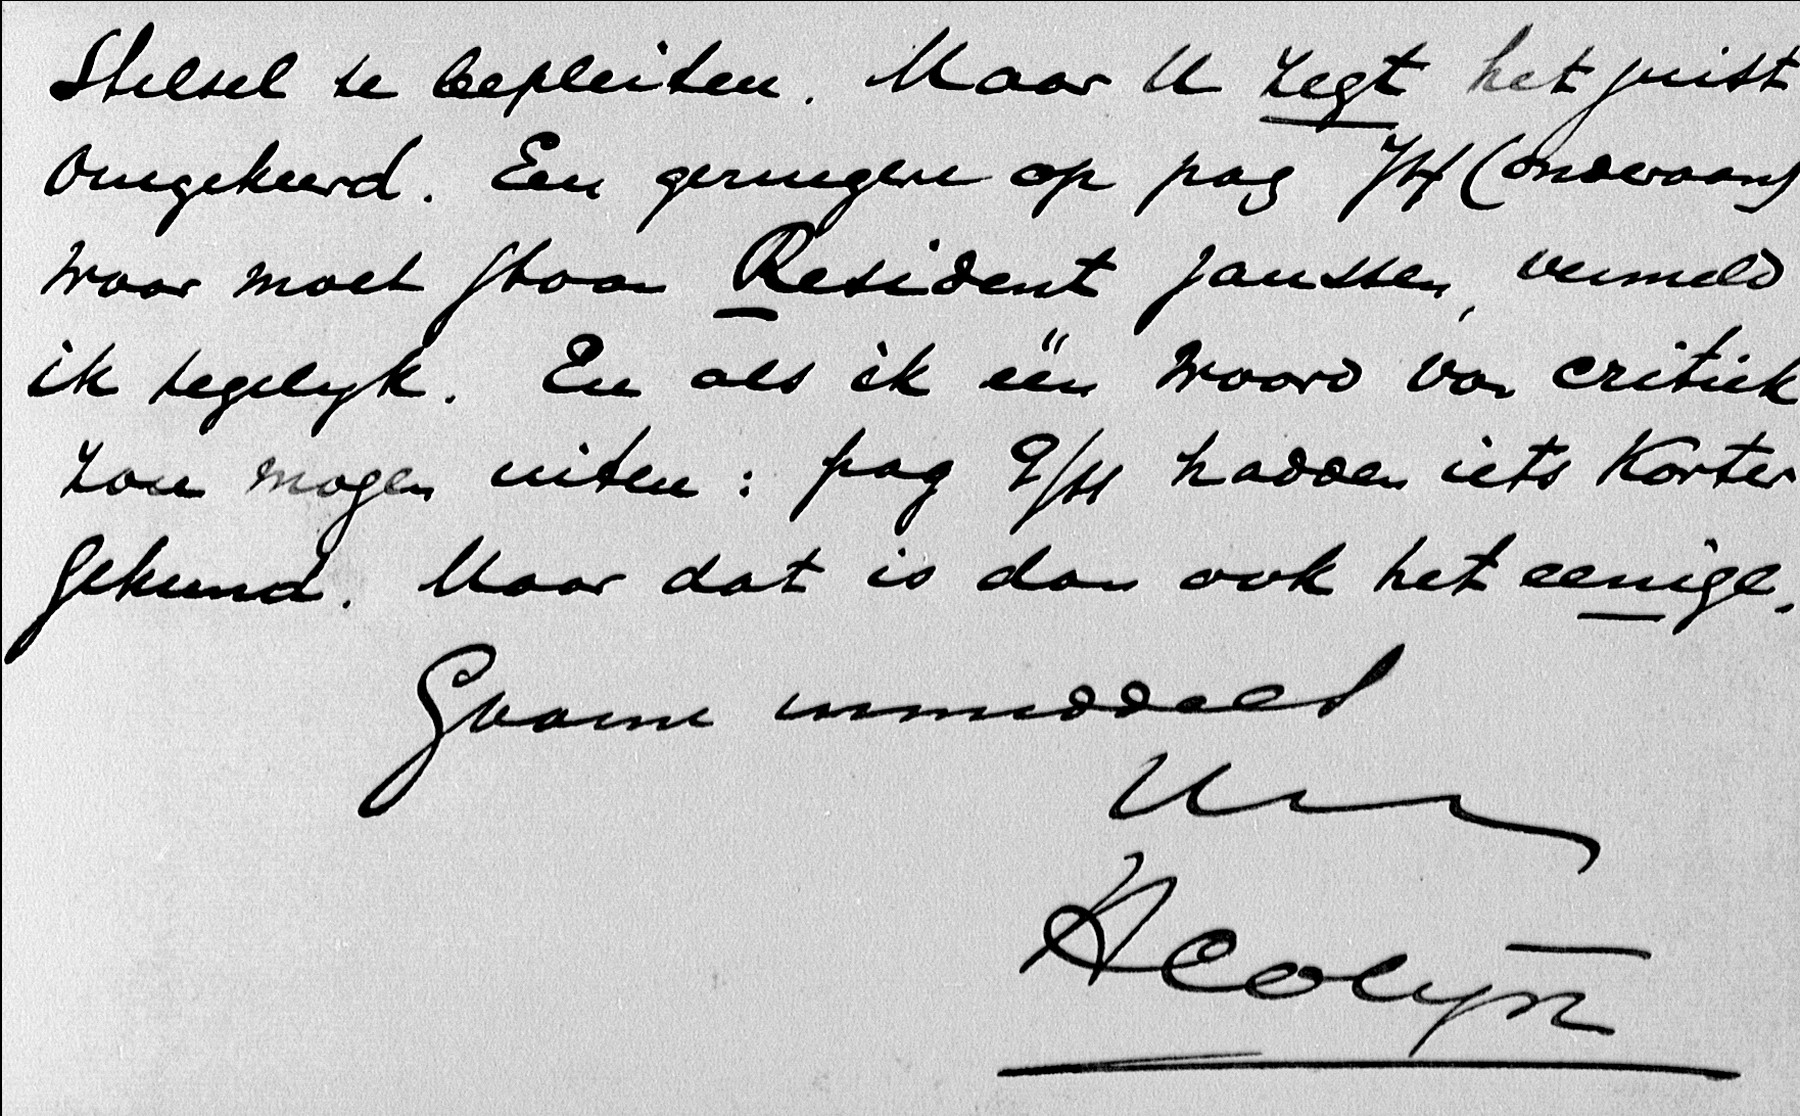 Stelsel te bepleiten. Maar U zegt het juist
omgekeerd. Een geringere op pag (onderaan)
waar moet staan Resident Janssen, vermeld
ik tegelyk. En als ik één woord van critiek
zou mogen uiten: pag hadden iets korter
gekund. Maar dat is dan ook het eenige.
Gaarne inmiddels
HColijn